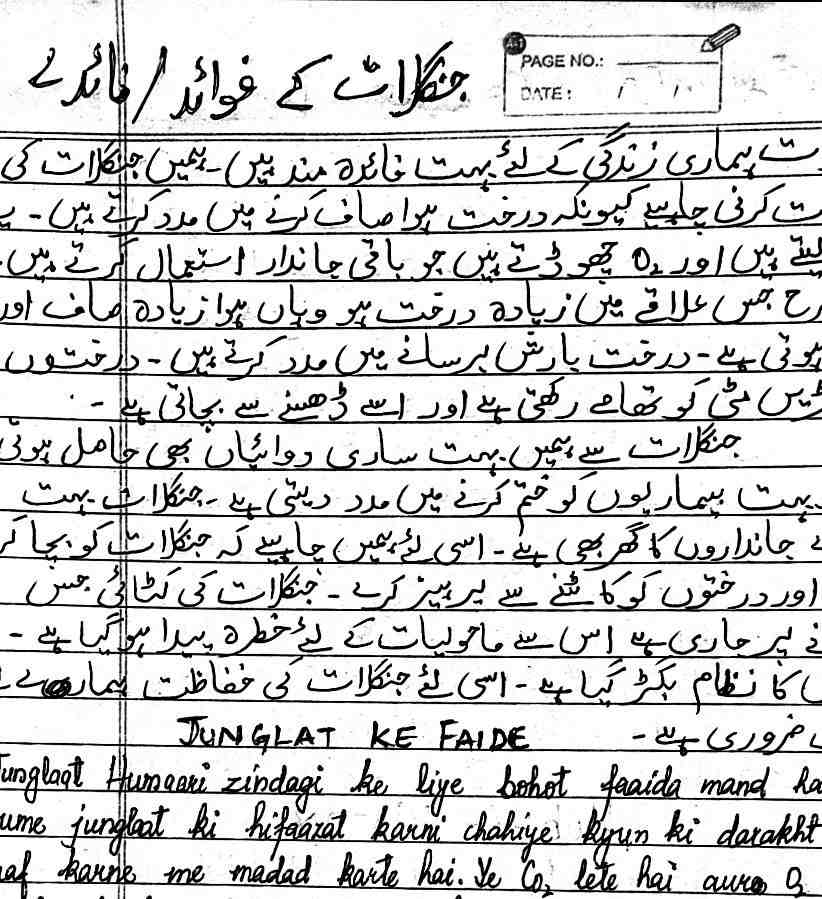 جنگلات کے فوائد / فائدے
PAGE NO.:
DATE:
ہماری زندگی کے لئے بہت فائدہ مند ہیں۔ ہمیں جنگلات کی
کرنی چاہیے کیونکہ درخت ہوا صاف کرنے میں مدد کرتے ہیں۔
لیتے ہیں اور O₂ چھوڈتے ہیں جو باقی جاندار استعمال کرتے ہیں۔
جس علاقے میں زیادہ درخت ہو وہاں ہوا زیادہ صاف اور
ہوتی ہے۔ درخت بارش برسانے میں مدد کرتے ہیں۔ درختوں
مٹی کو تھامے رکھتی ہے اور اسے ڈھسنے سے بچاتی ہے۔
جنگلات سے ہمیں بہت ساری دوائیاں بھی حاصل ہوتی
بہت بیماریوں کو ختم کرنے میں مدد دیتی ہے۔ جنگلات بہت
جانداروں کا گھر بھی ہے۔ اسی لئے ہمیں چاہیے کہ جنگلات کو بچا کر
اور درختوں کو کاٹنے سے پرہیز کرے۔ جنگلات کی کٹائی جس
پر جاری ہے اس سے ماحولیات کے لئے خطرہ پیدا ہو گیا ہے۔
کا نظام بگڑ گیا ہے۔ اسی لئے جنگلات کی حفاظت ہمارے
ضروری ہے۔
JUNGLAT KE FAIDE
Junglaat Humaari zindagi ke liye bohot faaida mand ha
ume junglaat ki hifaazat karni chahiye kyun ki darakht
aaf karne me madad karte hai. Ye Co₂ lete hai aur O₂